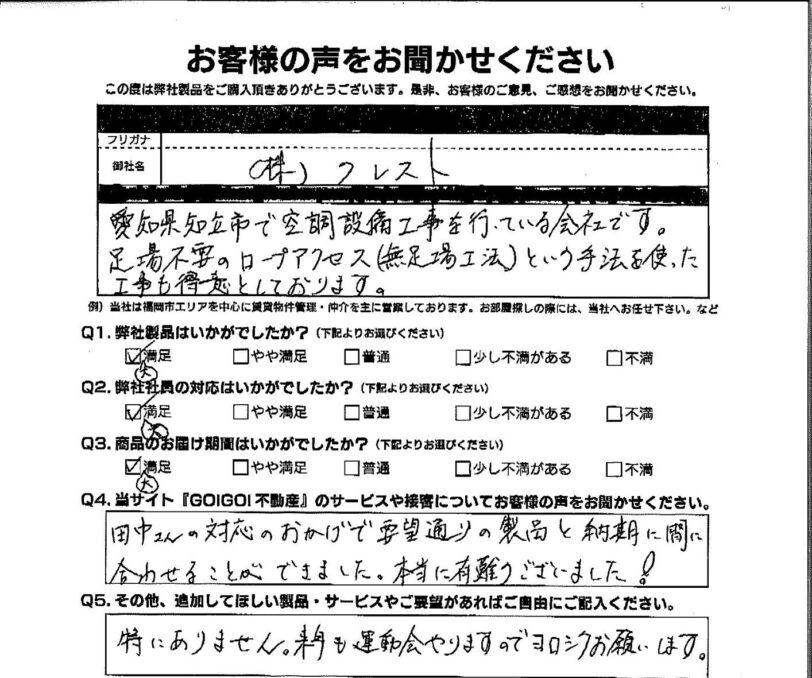 お客様の声をお聞かせください
この度は弊社製品をご購入頂きありがとうございます。是非、お客様のご意見、ご感想をお聞かせください。
フリガナ
御社名
(株) クレスト
愛知県知立市で空調設備工事を行っている会社です。
足場不要のロープアクセス(無足場工法)という手法を使った
工事も得意としております。
例）当社は福岡市エリアを中心に賃貸物件管理・仲介を主に営業しております。お部屋探しの際には、当社へお任せ下さい。など
Q1. 弊社製品はいかがでしたか？（下記よりお選びください）
☑満足 □やや満足 □普通 □少し不満がある □不満
大
Q2. 弊社社員の対応はいかがでしたか？（下記よりお選びください）
☑満足 □やや満足 □普通 □少し不満がある □不満
大
Q3. 商品のお届け期間はいかがでしたか？（下記よりお選びください）
☑満足 □やや満足 □普通 □少し不満がある □不満
大
Q4. 当サイト『GO!GO! 不動産』のサービスや接客についてお客様の声をお聞かせください。
田中さんの対応のおかげで要望通りの製品と納期に間に
合わせることができました。本当に有難うございました!
Q5. その他、追加してほしい製品・サービスやご要望があればご自由にご記入ください。
特にありません。来年も運動会やりますのでヨロシクお願いします。